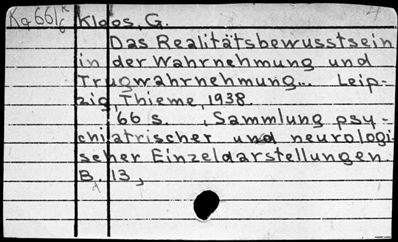 Ka 66 K/6 Kloos, G.
Das Realitätsbewusstsein
in der Wahrnehmung und
Trugwahrnehmung.. Leip-
zig, Thieme, 1938.
66 S. , Sammlung psy-
chiatrischer und neurologi-
scher Einzeldarstellungen.
B. 13,